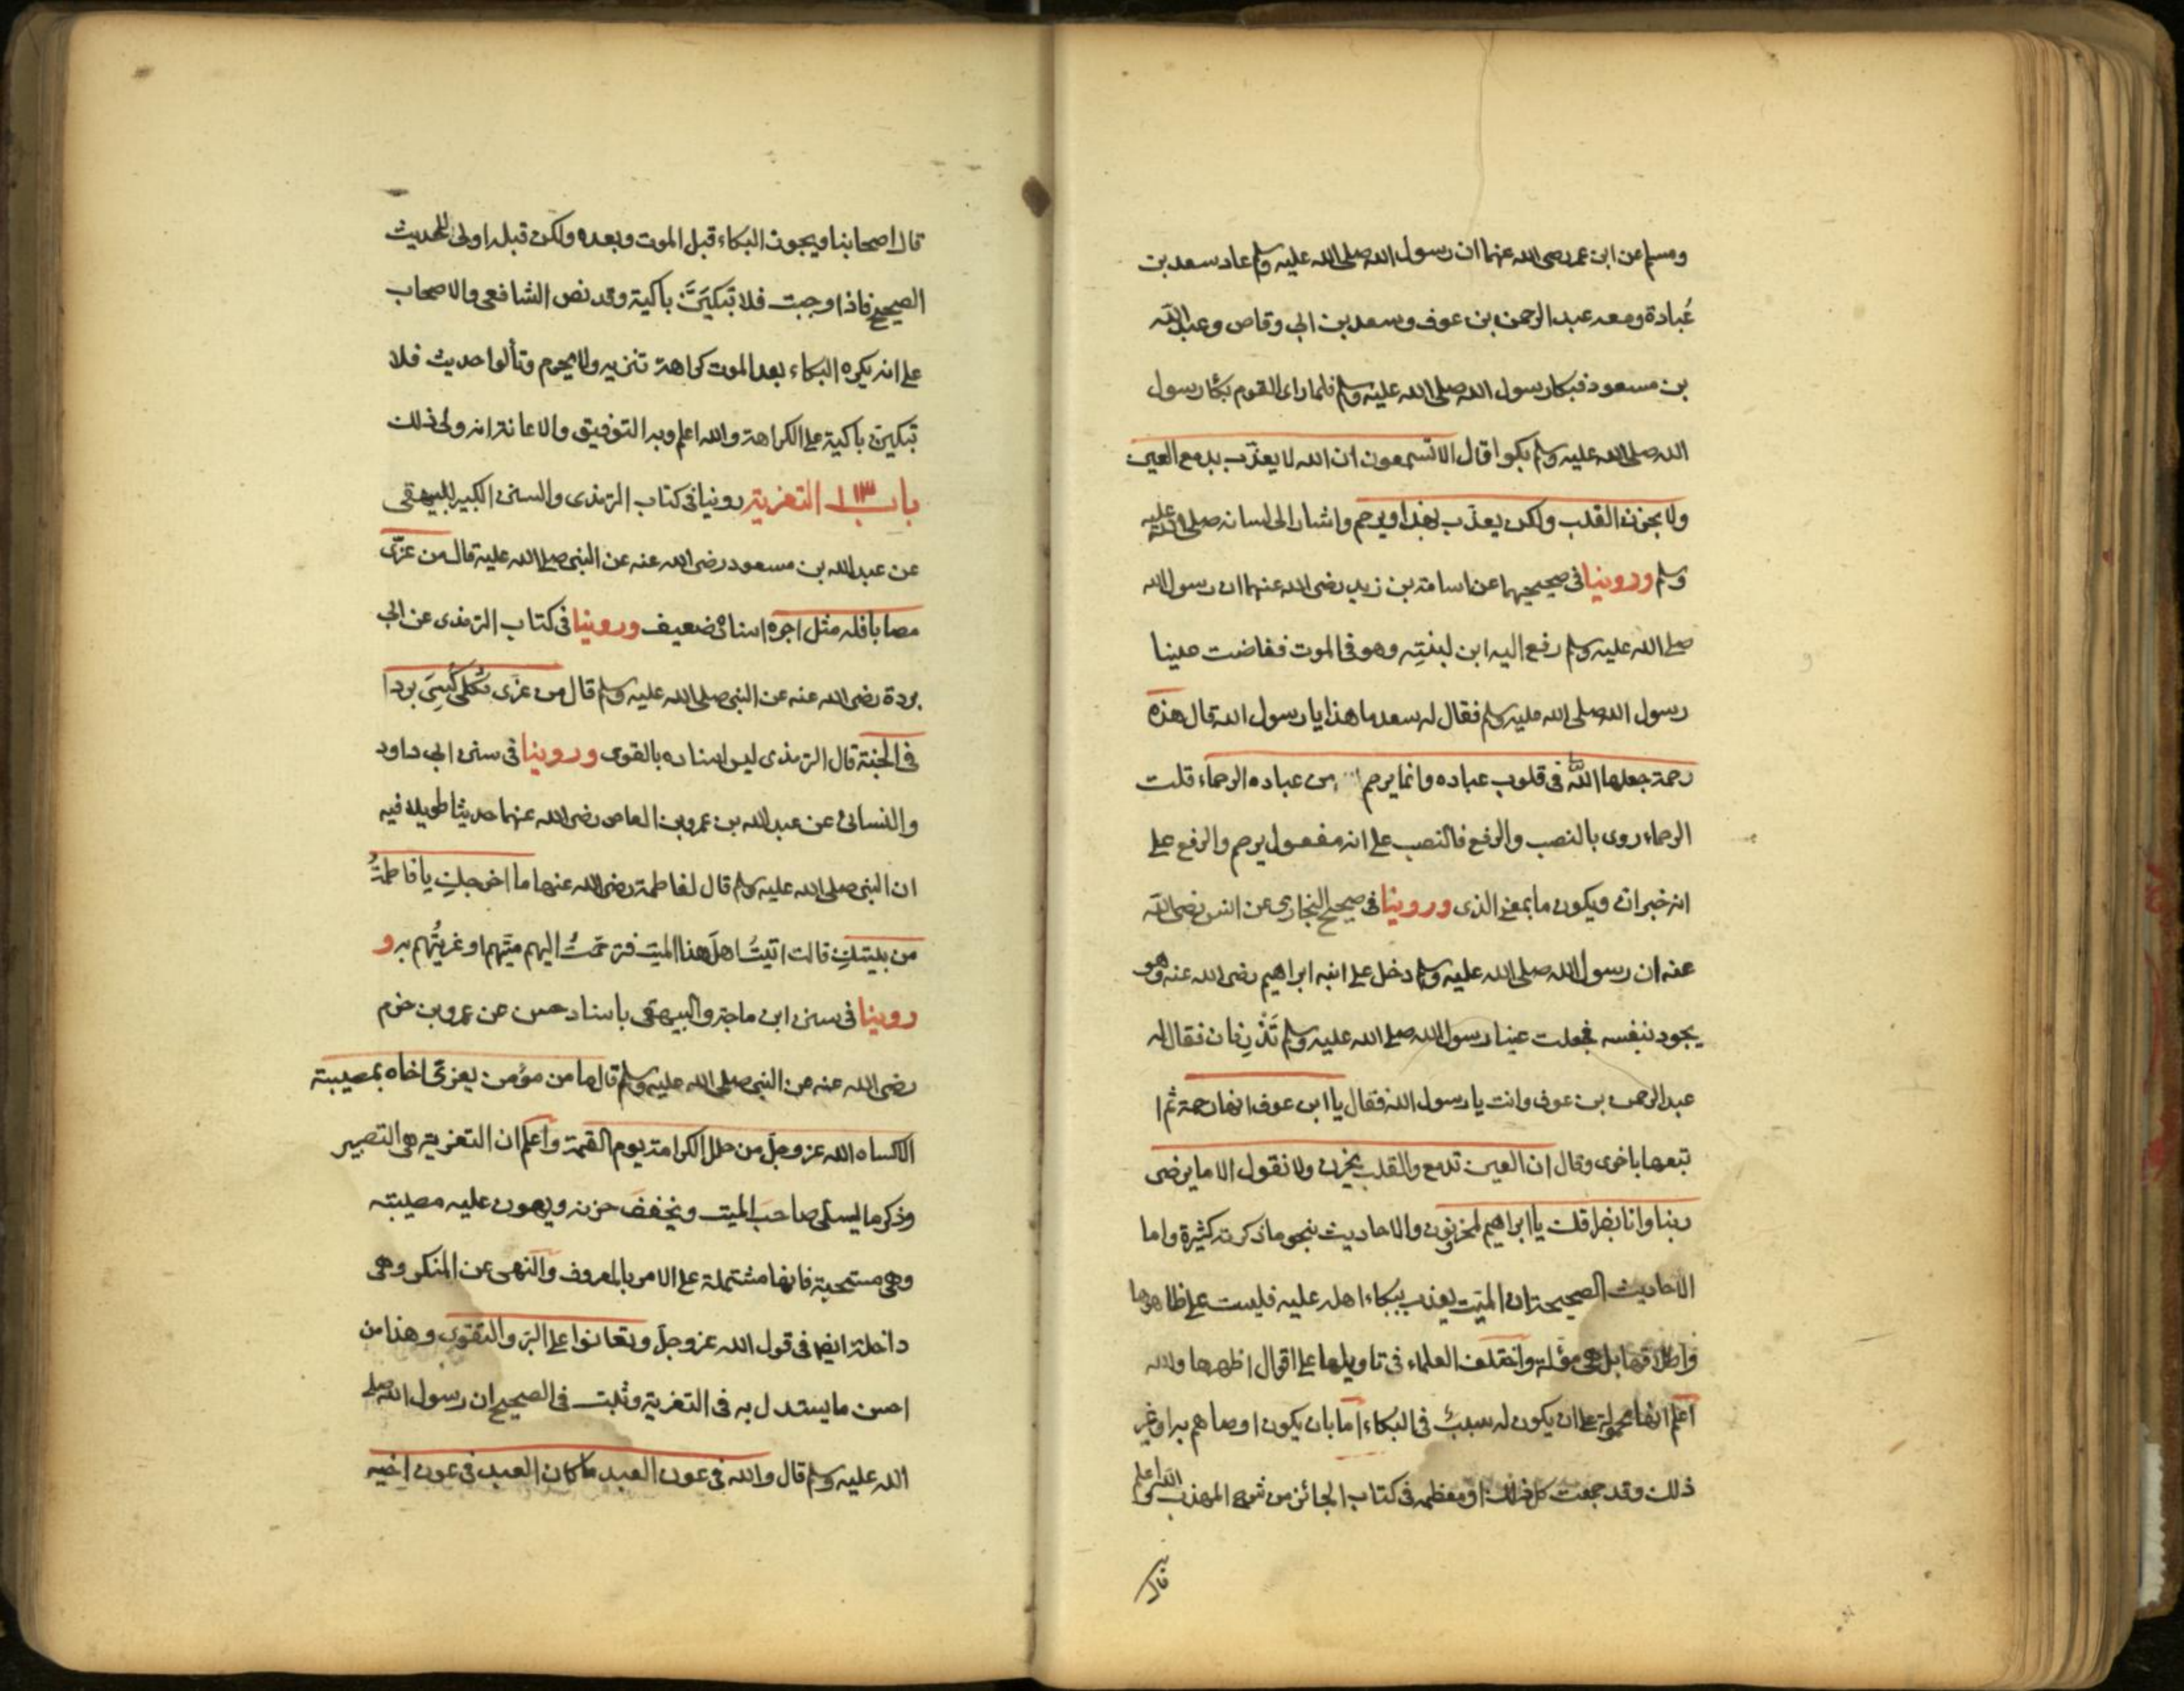 ومسلم عن ابن عمر رضى الله عنهما ان رسول الله صلى الله عليه وسلم عاد سعد بن
عُبادة ومعه عبد الرحمن بن عوف وسعد بن ابى وقاص وعبد الله
بن مسعود فبكا رسول الله صلى الله عليه وسلم فلما راى القوم بكا رسول
الله صلى الله عليه وسلم بكوا قال الا تسمعون ان الله لا يعذب بدمع العين
ولا بحزن القلب ولكن يعذب بهذا او يرحم واشار الى لسانه صلى الله عليه
وسلم وروينا فى صحيحيهما عن اسامة بن زيد رضى الله عنهما ان رسول الله
صلى الله عليه وسلم رفع اليه ابن لبنتِه وهو فى الموت ففاضت عينا
رسول الله صلى الله عليه وسلم فقال له سعد ما هذا يا رسول الله قال هذه
رحمة جعلها الله فى قلوب عباده وانما يرحم من عباده الرحماء قلت
الرحماء روى بالنصب والرفع فالنصب على انه مفعول يرحم والرفع على
انه خبر ان ويكون ما بمعنى الذى وروينا فى صحيح البخارى عن انس رضى الله
عنه ان رسول الله صلى الله عليه وسلم دخل على ابنه ابراهيم رضى الله عنه وهو
يجود بنفسه فجعلت عينا رسول الله صلى الله عليه وسلم تَذْرِفان فقال له
عبد الرحمن بن عوف وانت يا رسول الله فقال يا ابن عوف انها رحمة ثم ا
تبعها باخرى وقال ان العين تدمع والقلب يحزن ولا نقول الا ما يرضى
ربنا وانا بفراقك يا ابراهيم لمحزونون والاحاديث بنحو ما ذكرته كثيرة واما
الاحاديث الصحيحة ان الميت يعذب ببكاء اهله عليه فليست على ظاهرها
واطلاقها بل هى مؤلة واختلف العلماء فى تاويلها على اقوال اظهرها والله
اعلم انها محمولة على ان يكون له سببٌ فى البكاء اما بان يكون اوصاهم به او غير
ذلك وقد جمعت كل ذلك او معظمه فى كتاب الجنائز من شرح المهذب والله اعلم
قال
قال اصحابنا ويجوز البكاء قبل الموت وبعده ولكن قبله اولى للحديث
الصحيح فاذا وجبت فلا تبكيَنَّ باكية وقد نص الشافعى والاصحاب
على انه يكره البكاء بعد الموت كراهة تنزيه ولا يحرم وتألوا حديث فلا
تبكين باكية على الكراهة والله اعلم وبه التوفيق والاعانة انه ولى ذلك
باب ١١٣ التعزية روينا فى كتاب الترمذى والسنن الكبير للبيهقى
عن عبد الله بن مسعود رضى الله عنه عن النبى صلى الله عليه قال من عزّى
مصابا فله مثل اجره اسناده ضعيف وروينا فى كتاب الترمذى عن ابى
بردة رضى الله عنه عن النبى صلى الله عليه وسلم قال من عزى ثكلى كُسِىَ بردا
فى الجنة قال الترمذى ليس اسناده بالقوى وروينا فى سنن ابى داود
والنسائى عن عبد الله بن عمرو بن العاص رضى الله عنهما حديثا طويلا فيه
ان النبى صلى الله عليه وسلم قال لفاطمة رضى الله عنها ما اخرجكِ يا فاطمةُ
من بيتكِ قالت اتيتُ اهلَ هذا الميت فترحمتُ اليهم ميّتهم او عزيتُهم به و
روينا فى سنن ابن ماجة والبيهقى باسناد حسن عن عمرو بن حزم
رضى الله عنه عن النبى صلى الله عليه وسلم قال ما من مؤمن يعزى اخاه بمصيبته
الا كساه الله عز وجل من حلل الكرامة يوم القيمة واعلم ان التعزية هى التصبير
وذكر ما يسلى صاحبَ الميت ويخففَ حزنه ويهون عليه مصيبته
وهى مستحبة فانها مشتملة على الامر بالمعروف والنهى عن المنكر وهى
داخلة ايضا فى قول الله عز وجل وتعاونوا على البر والتقوى وهذا من
احسن ما يستدل به فى التعزية وثبت فى الصحيح ان رسول الله صلى
الله عليه وسلم قال والله فى عون العبد ما كان العبد فى عون اخيه